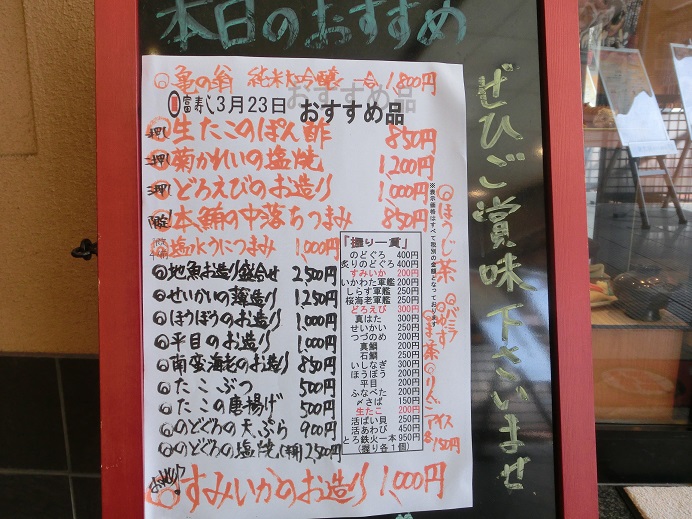 本日のおすすめ
亀の翁 純米大吟醸 一合 1,800円
富寿し 3月23日 おすすめ品
一押し 生たこのぽん酢 850円
二押し 菊かれいの塩焼 1,200円
三押し どろえびのお造り 1,000円
限定 本鮪の中落ちつまみ 850円
塩水うにつまみ 1,000円
地魚お造り盛合せ 2,500円
せいかいの薄造り 1,250円
ほうぼうのお造り 1,000円
平目のお造り 1,000円
南蛮海老のお造り 850円
たこぶつ 500円
たこの唐揚げ 500円
のどぐろの天ぷら 900円
のどぐろの塩焼 2,500円
すみいかのお造り 1,000円
『握り一貫』
のどぐろ 400円
炙りのどぐろ 400円
すみいか 200円
いかわた軍艦 200円
しらす軍艦 250円
桜海老軍艦 250円
どろえび 300円
真はた 300円
せいかい 250円
つづのめ 200円
真鯛 200円
石鯛 250円
いしなぎ 300円
ほうぼう 200円
平目 200円
ふなべた 200円
〆さば 150円
生たこ 200円
活ばい貝 250円
活あわび 450円
とろ鉄火一本 950円
(握り各1個)
※表示価格はすべて税別の金額となっております
ほうじ茶
バニラ
ごま
抹茶
りんご
アイス
各150円
ぜひご賞味下さいませ